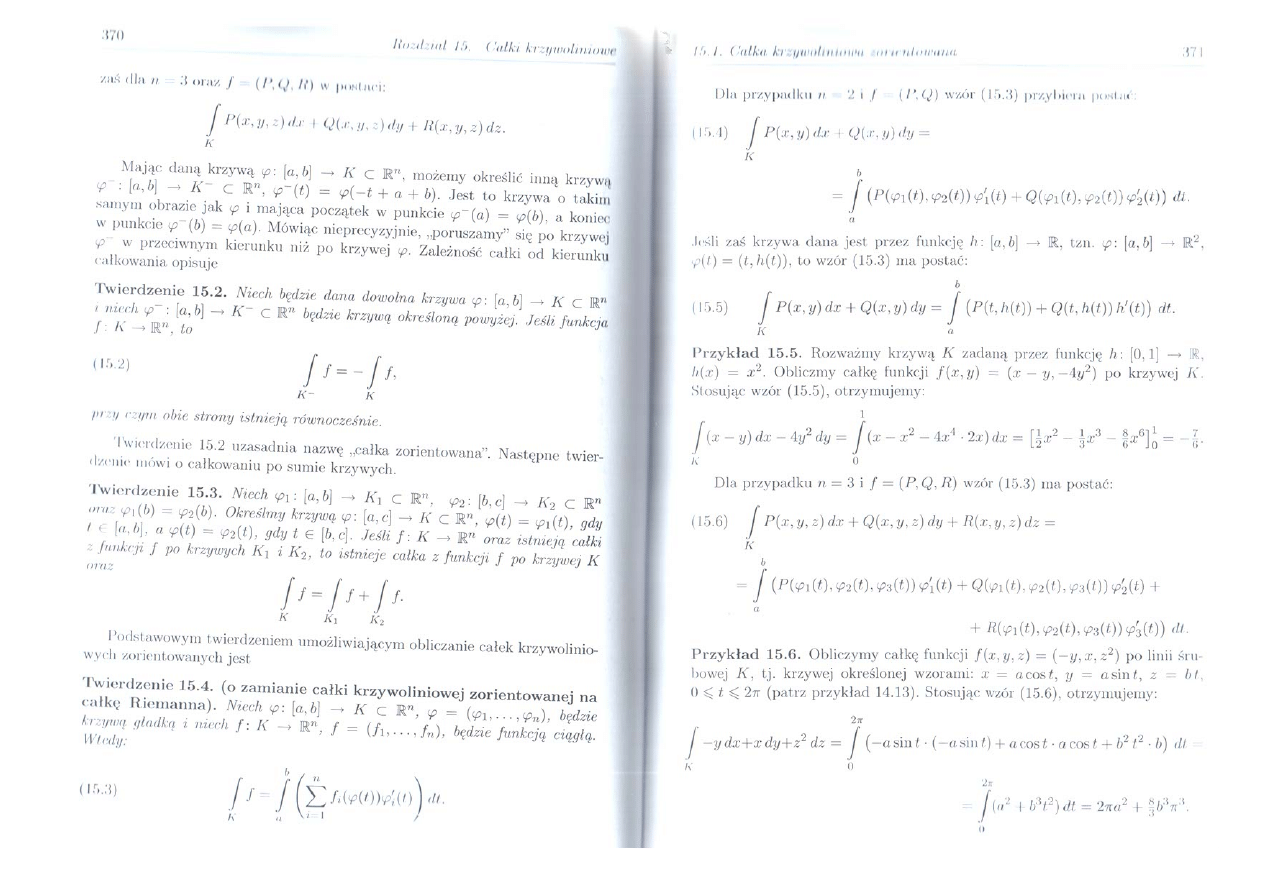 370
Rozdział 15. Całki krzywoliniowe
zaś dla n = 3 oraz f = (P, Q, R) w postaci:
∫_K P(x, y, z) dx + Q(x, y, z) dy + R(x, y, z) dz.
Mając daną krzywą φ: [a, b] → K ⊂ ℝⁿ, możemy określić inną krzywą
φ⁻: [a, b] → K⁻ ⊂ ℝⁿ, φ⁻(t) = φ(−t + a + b). Jest to krzywa o takim
samym obrazie jak φ i mająca początek w punkcie φ⁻(a) = φ(b), a koniec
w punkcie φ⁻(b) = φ(a). Mówiąc nieprecyzyjnie, „poruszamy” się po krzywej
φ⁻ w przeciwnym kierunku niż po krzywej φ. Zależność całki od kierunku
całkowania opisuje
Twierdzenie 15.2. Niech będzie dana dowolna krzywa φ: [a, b] → K ⊂ ℝⁿ
i niech φ⁻: [a, b] → K⁻ ⊂ ℝⁿ będzie krzywą określoną powyżej. Jeśli funkcja
f: K → ℝⁿ, to
(15.2) ∫_{K⁻} f = − ∫_K f,
przy czym obie strony istnieją równocześnie.
Twierdzenie 15.2 uzasadnia nazwę „całka zorientowana”. Następne twier-
dzenie mówi o całkowaniu po sumie krzywych.
Twierdzenie 15.3. Niech φ₁: [a, b] → K₁ ⊂ ℝⁿ, φ₂: [b, c] → K₂ ⊂ ℝⁿ
oraz φ₁(b) = φ₂(b). Określmy krzywą φ: [a, c] → K ⊂ ℝⁿ, φ(t) = φ₁(t), gdy
t ∈ [a, b], a φ(t) = φ₂(t), gdy t ∈ [b, c]. Jeśli f: K → ℝⁿ oraz istnieją całki
z funkcji f po krzywych K₁ i K₂, to istnieje całka z funkcji f po krzywej K
oraz
∫_K f = ∫_{K₁} f + ∫_{K₂} f.
Podstawowym twierdzeniem umożliwiającym obliczanie całek krzywolinio-
wych zorientowanych jest
Twierdzenie 15.4. (o zamianie całki krzywoliniowej zorientowanej na
całkę Riemanna). Niech φ: [a, b] → K ⊂ ℝⁿ, φ = (φ₁, . . . , φₙ), będzie
krzywą gładką i niech f: K → ℝⁿ, f = (f₁, . . . , fₙ), będzie funkcją ciągłą.
Wtedy:
(15.3) ∫_K f = ∫_a^b (∑_{i=1}^n fᵢ(φ(t))φ′ᵢ(t)) dt.
15.1. Całka krzywoliniowa zorientowana
371
Dla przypadku n = 2 i f = (P, Q) wzór (15.3) przybiera postać:
(15.4) ∫_K P(x, y) dx + Q(x, y) dy =
= ∫_a^b (P(φ₁(t), φ₂(t)) φ′₁(t) + Q(φ₁(t), φ₂(t)) φ′₂(t)) dt.
Jeśli zaś krzywa dana jest przez funkcję h: [a, b] → ℝ, tzn. φ: [a, b] → ℝ²,
φ(t) = (t, h(t)), to wzór (15.3) ma postać:
(15.5) ∫_K P(x, y) dx + Q(x, y) dy = ∫_a^b (P(t, h(t)) + Q(t, h(t)) h′(t)) dt.
Przykład 15.5. Rozważmy krzywą K zadaną przez funkcję h: [0, 1] → ℝ,
h(x) = x². Obliczmy całkę funkcji f(x, y) = (x − y, −4y²) po krzywej K.
Stosując wzór (15.5), otrzymujemy:
∫_K (x − y) dx − 4y² dy = ∫_0^1 (x − x² − 4x⁴ · 2x) dx = [½x² − ⅓x³ − 8/6x⁶]_0^1 = −7/6.
Dla przypadku n = 3 i f = (P, Q, R) wzór (15.3) ma postać:
(15.6) ∫_K P(x, y, z) dx + Q(x, y, z) dy + R(x, y, z) dz =
= ∫_a^b (P(φ₁(t), φ₂(t), φ₃(t)) φ′₁(t) + Q(φ₁(t), φ₂(t), φ₃(t)) φ′₂(t) +
+ R(φ₁(t), φ₂(t), φ₃(t)) φ′₃(t)) dt.
Przykład 15.6. Obliczymy całkę funkcji f(x, y, z) = (−y, x, z²) po linii śru-
bowej K, tj. krzywej określonej wzorami: x = a cos t, y = a sin t, z = bt,
0 ⩽ t ⩽ 2π (patrz przykład 14.13). Stosując wzór (15.6), otrzymujemy:
∫_K −y dx + x dy + z² dz = ∫_0^{2π} (−a sin t · (−a sin t) + a cos t · a cos t + b² t² · b) dt =
= ∫_0^{2π} (a² + b³t²) dt = 2πa² + 8/3 b³π³.